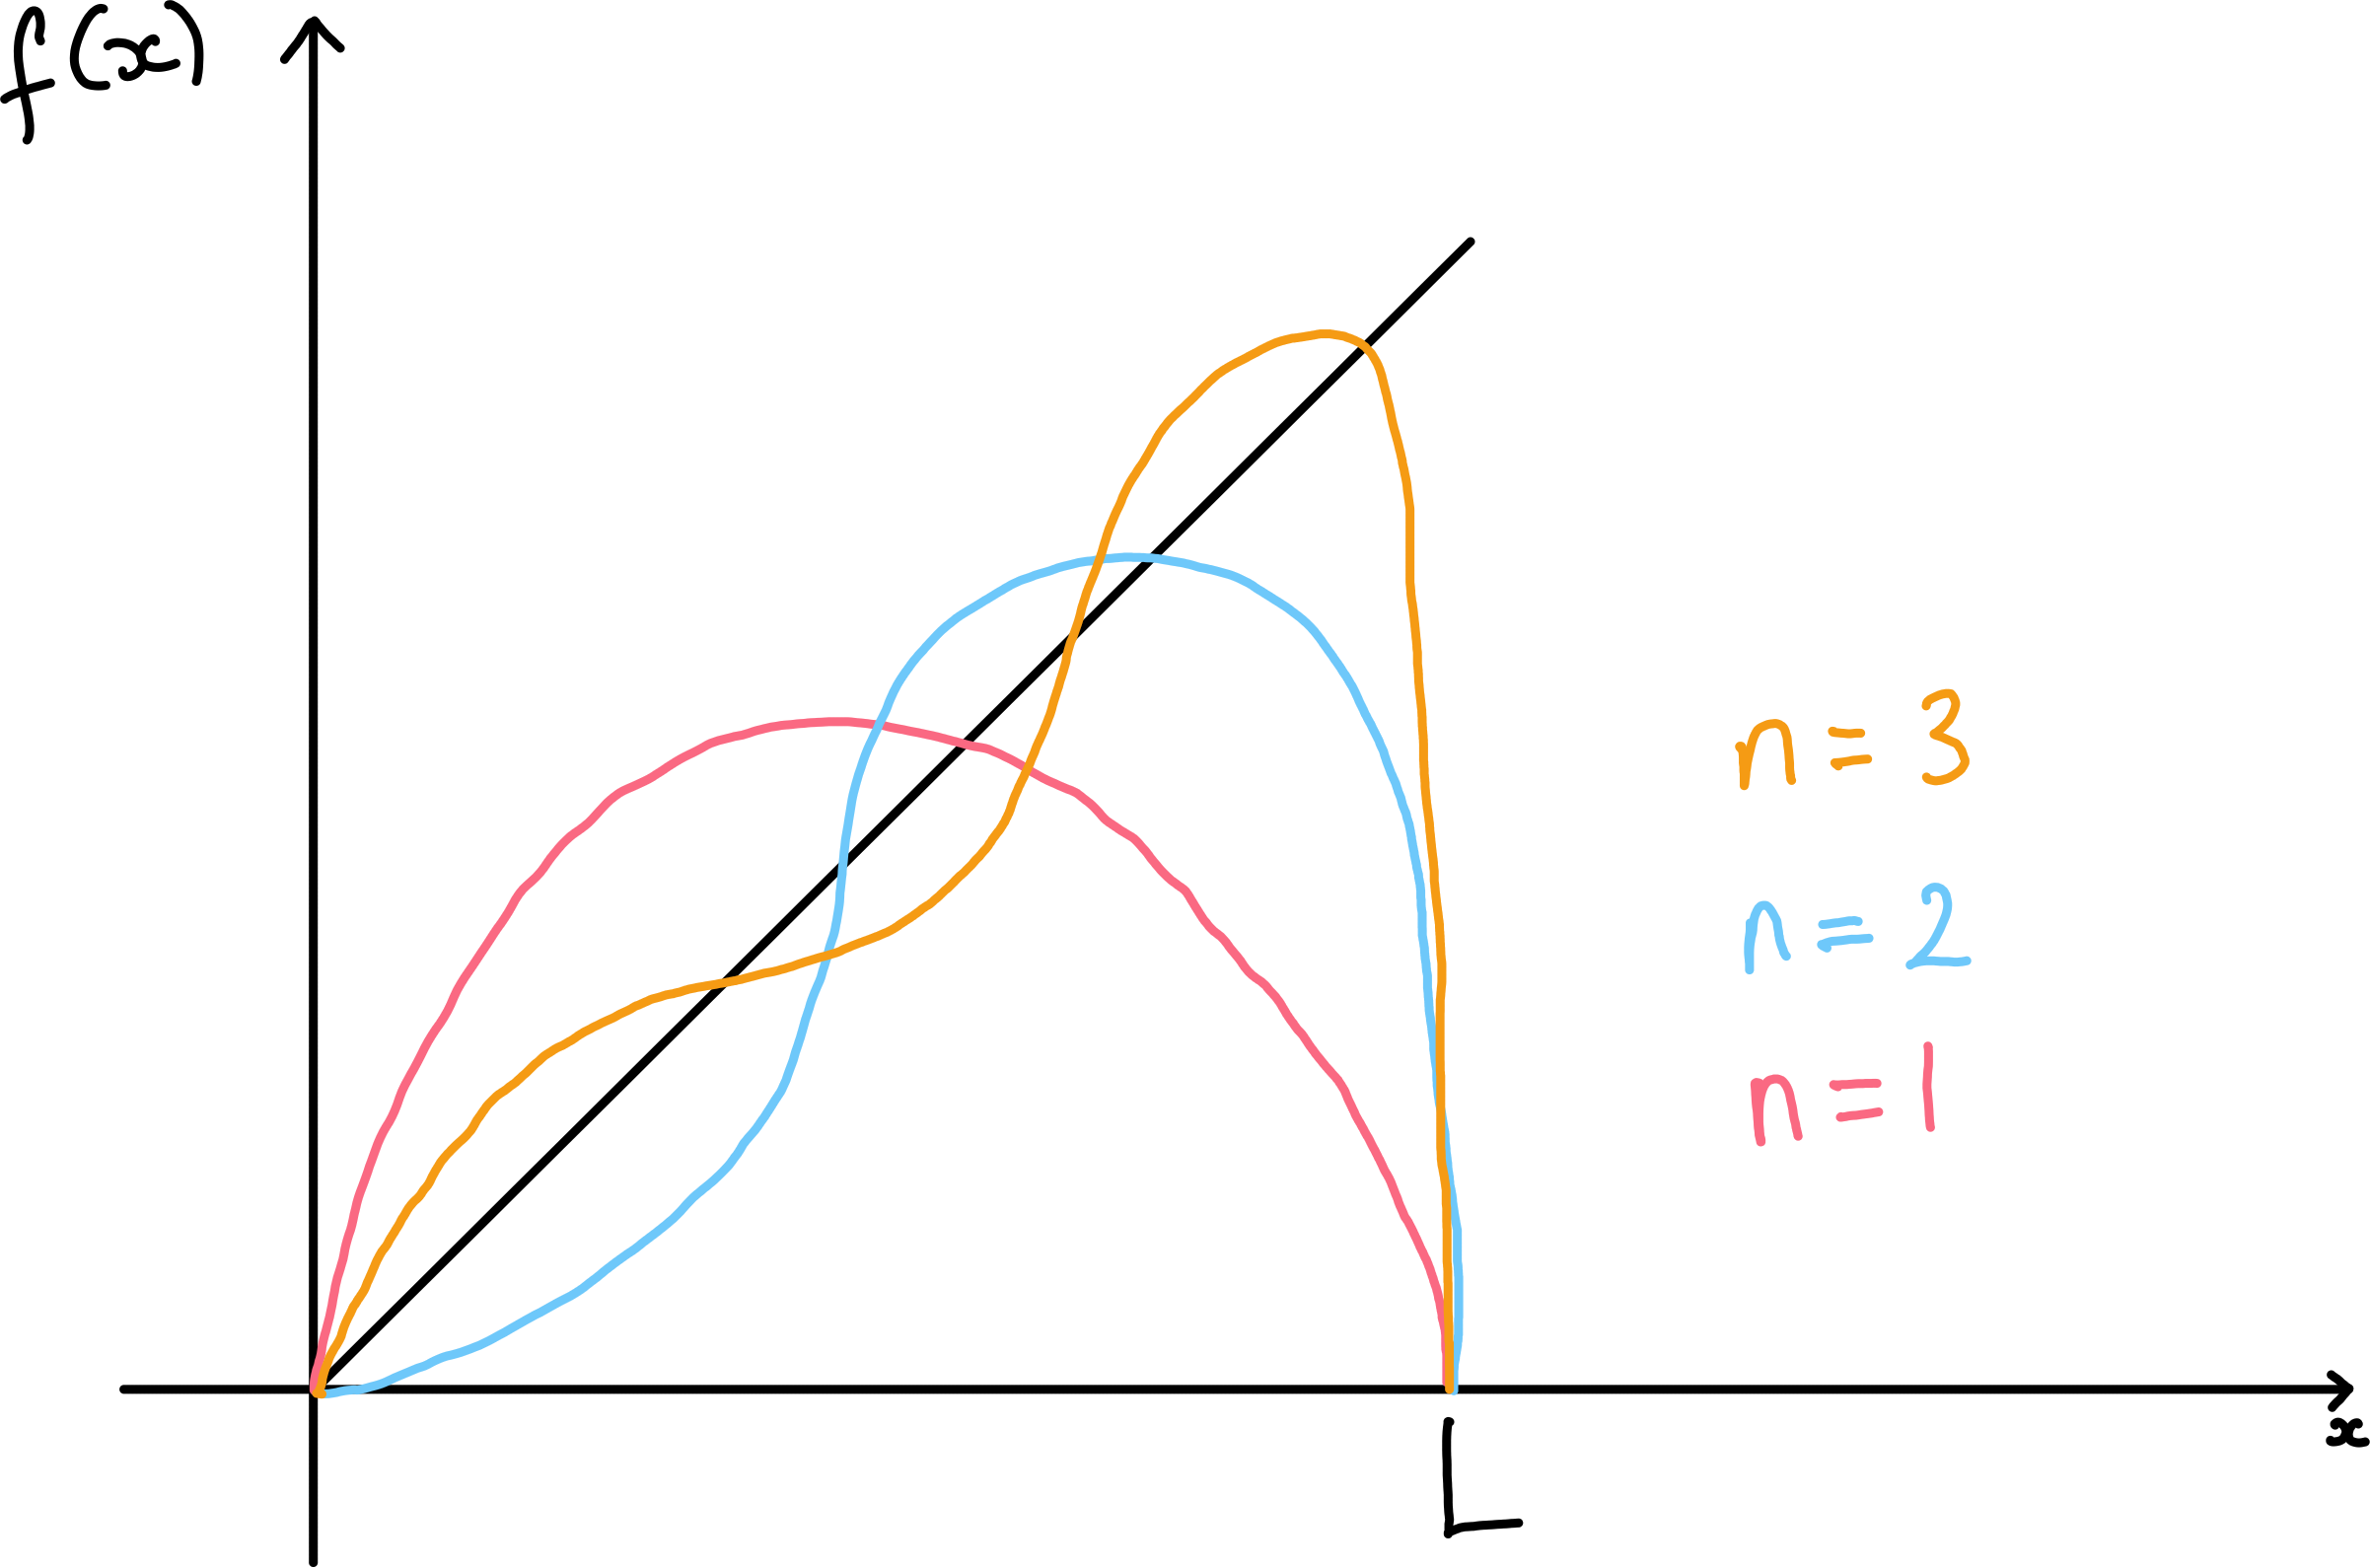 f(x)
n = 3
n = 2
n = 1
x
L